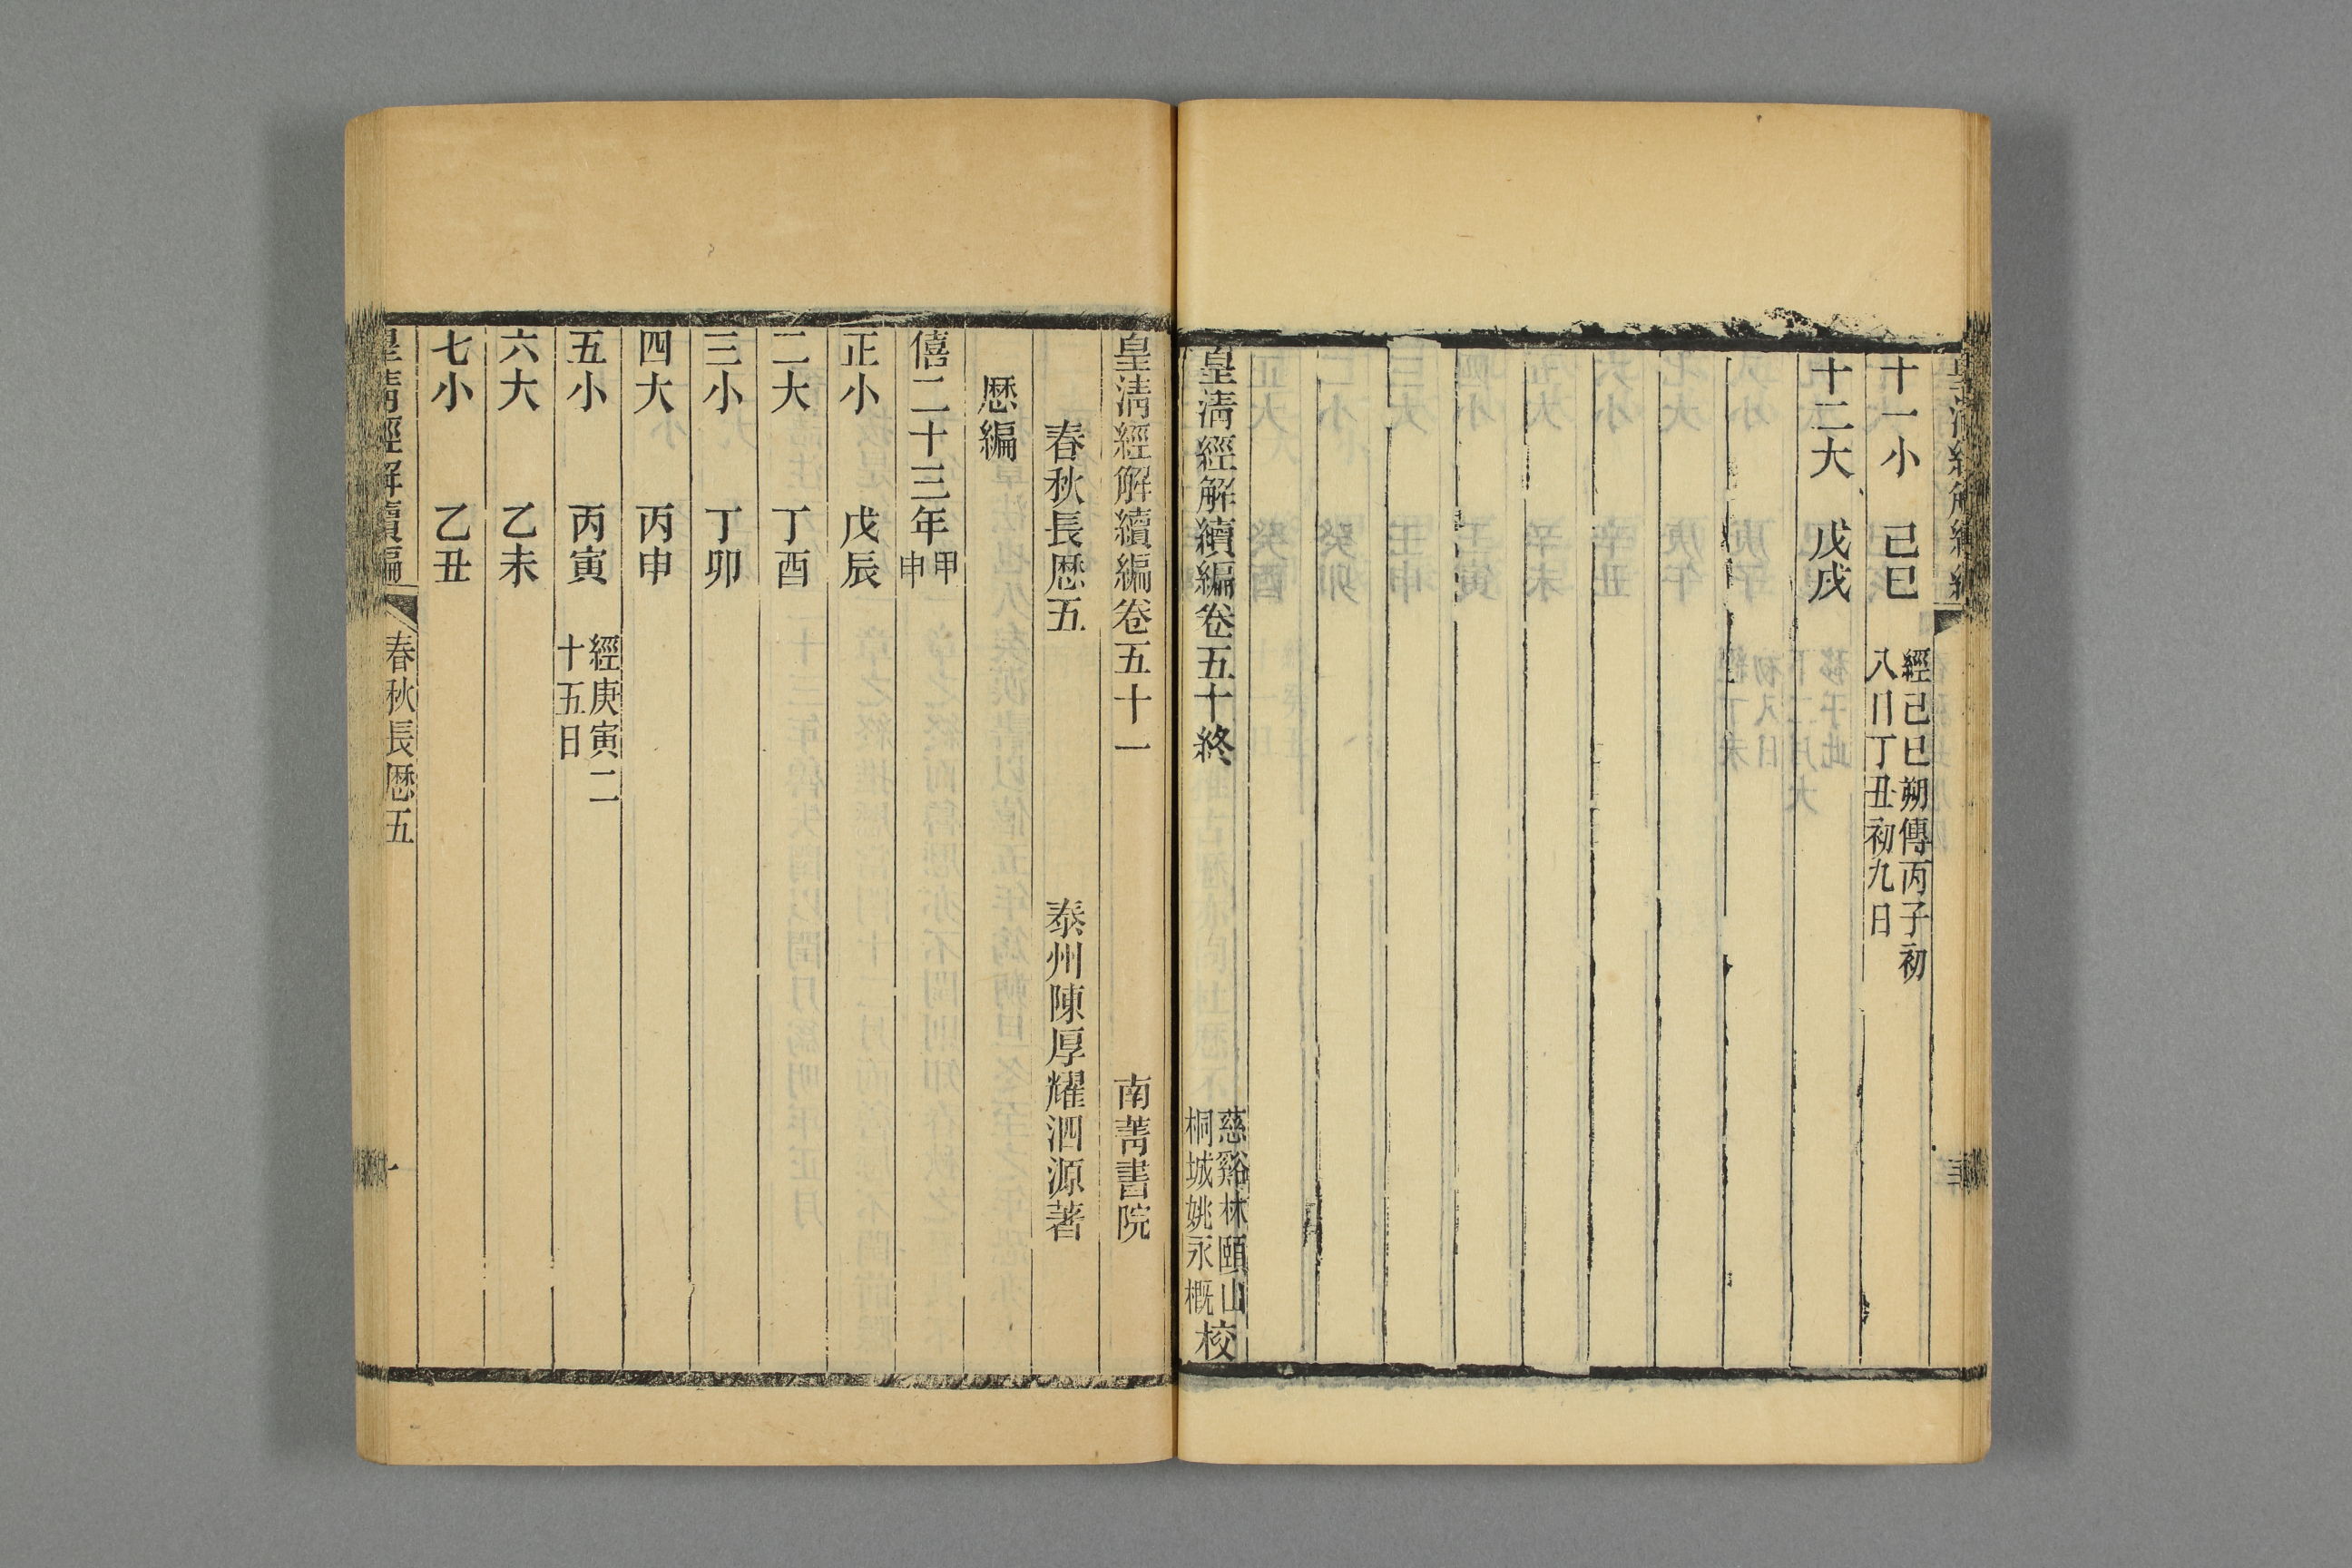 十一小 己巳 經己巳朔傳丙子初
八日丁丑初九日
十二大 戊戌
皇清經解續編卷五十終 慈谿林頤山
桐城姚永概 校
皇清經解續編卷五十一 南菁書院
春秋長厯五 泰州陳厚耀泗源著
厯編
僖二十三年甲申
正小 戊辰
二大 丁酉
三小 丁卯
四大 丙申
五小 丙寅 經庚寅二
十五日
六大 乙未
七小 乙丑
皇清經解續編 春秋長厯五 一